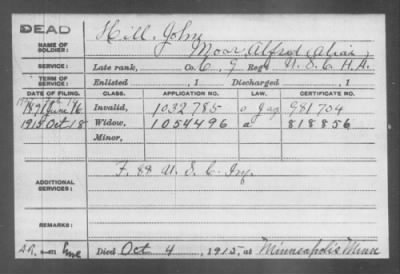 DEAD
NAME OF SOLDIER:
Hill, John
Moor, Alfred (alias)
SERVICE:
Late rank, Co. C, 9 Reg't U.S.C.H.A.
TERM OF SERVICE:
Enlisted , 1 Discharged , 1
DATE OF FILING. CLASS. APPLICATION NO. LAW. CERTIFICATE NO.
1891 June 16 Invalid, 1032785 981704
1915 Oct 18 Widow, 1054496 a 818856
Minor,
ADDITIONAL SERVICES:
F. 88 U.S.C. Inf.
REMARKS:
Died Oct 4, 1915, at Minneapolis Minn